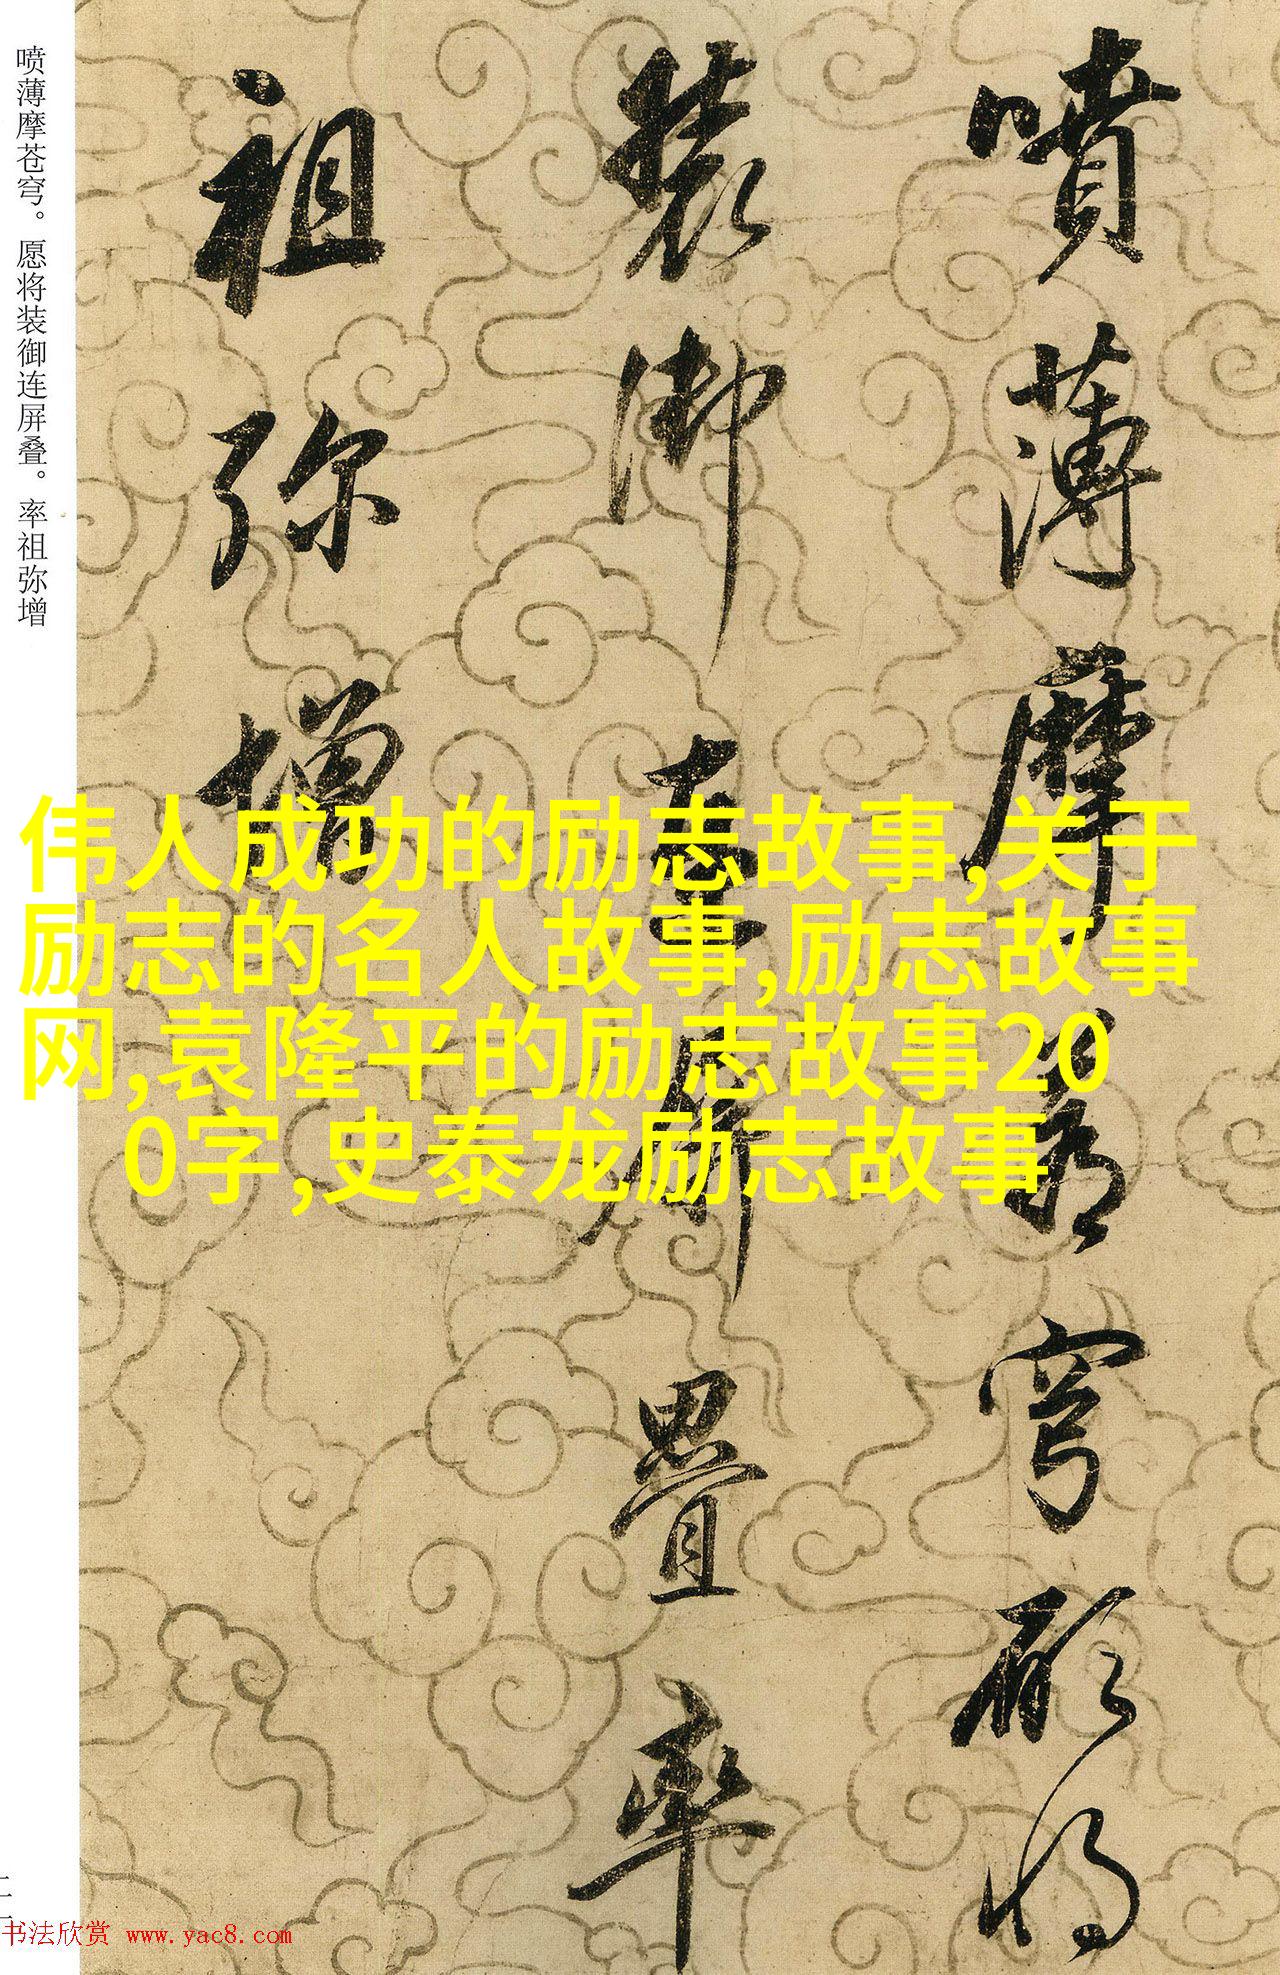 噴薄摩蒼穹願将
裝御連屏疊率
祖弥增
喷薄摩苍穹。愿将装御连屏叠。率祖弥增
伟人成功的励志故事,关于
励志的名人故事,励志故事
网,袁隆平的励志故事20
0字,史泰龙励志故事
书法欣赏 www.yac8.com